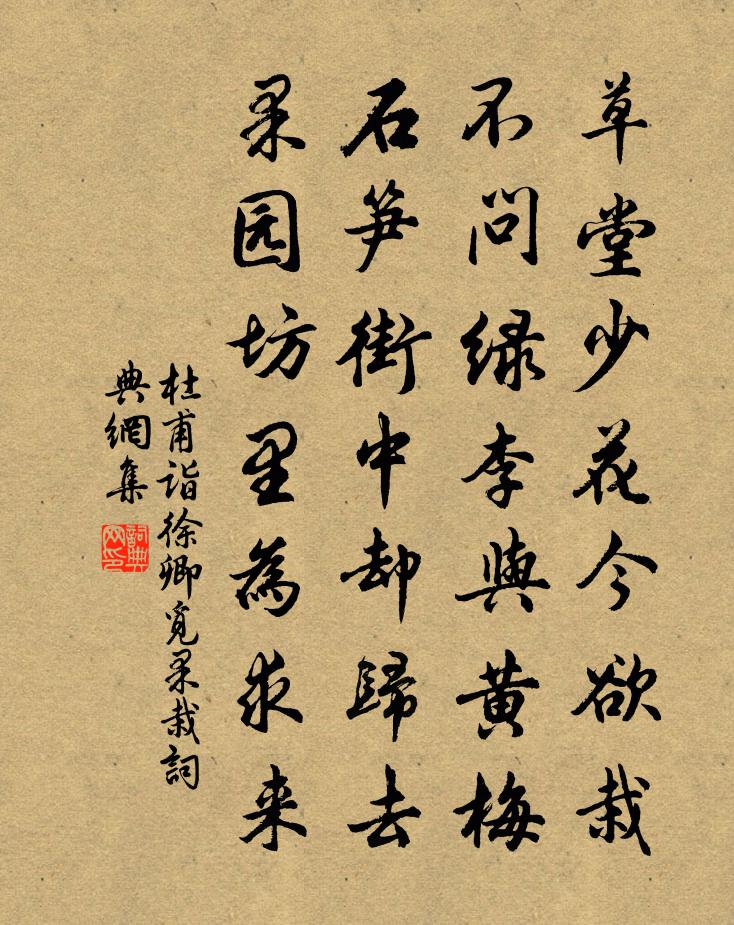 草堂少花今欲栽
不问绿李與黄梅
石笋街中却歸去
果园坊里為求来
杜甫詣徐卿覓果栽詞
典網集
詞典网印